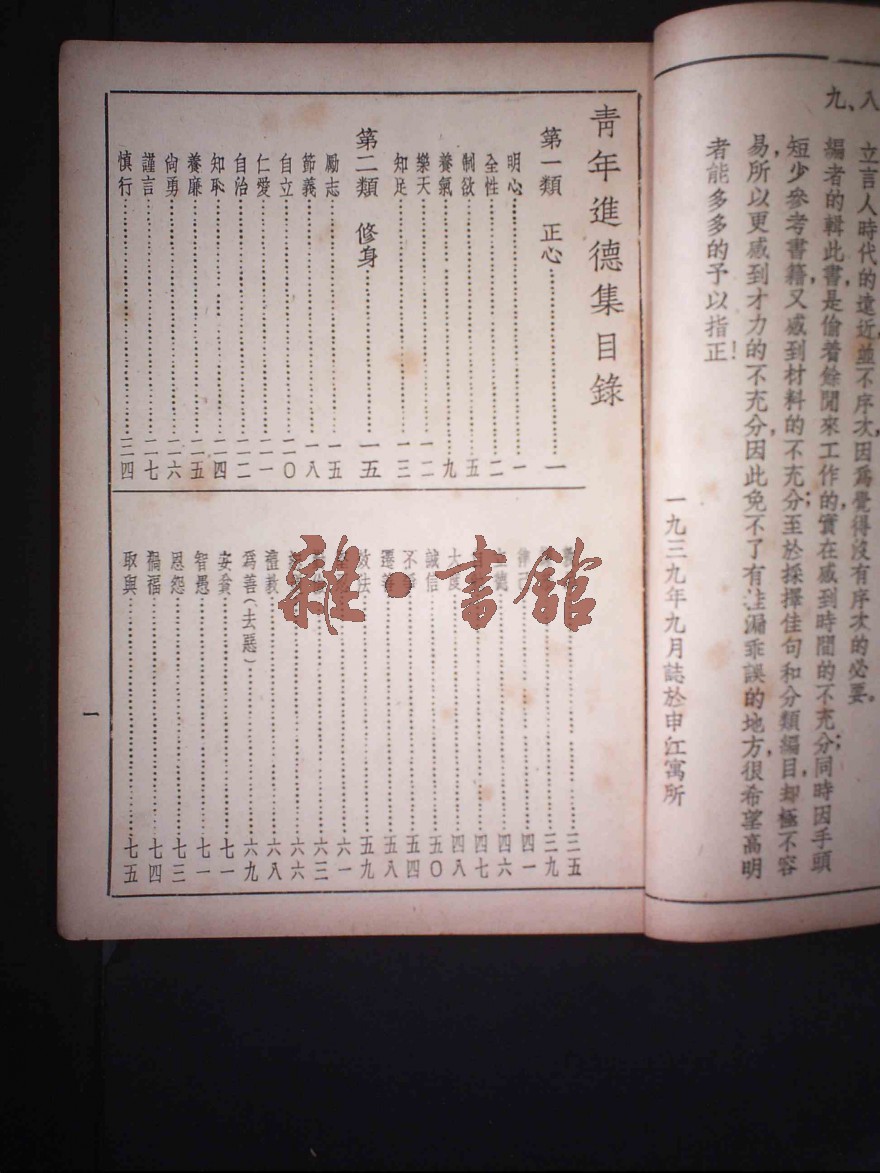 八、立言人時代的遠近,並不序次,因為覺得沒有序次的必要。
九、編者的輯此書,是偷着餘閒來工作的,實在感到時間的不充分;同時因手頭
短少參考書籍,又感到材料的不充分;至於採擇佳句和分類編目,却極不容
易,所以更感到才力的不充分,因此免不了有遺漏乖誤的地方,很希望高明
者能多多的予以指正!
一九三九年九月誌於申江寓所
青年進德集目錄
第一類 正心……一
明心……一
全性……二
制欲……五
養氣……九
樂天……一二
知足……一三
第二類 修身……一五
勵志……一五
節義……一八
自立……二〇
仁愛……二一
自治……二二
知恥……二四
養廉……二五
尙勇……二六
謹言……二七
慎行……三四
……三五
……三九
律己……四一
德……四六
……四七
大度……四八
誠信……五〇
不……五四
遷善……五八
效法……五九
……六一
……六三
……六六
禮教……六八
爲善(去惡)……六九
安貧……七一
智愚……七一
恩怨……七三
禍福……七四
取與……七五
一
雜·書館